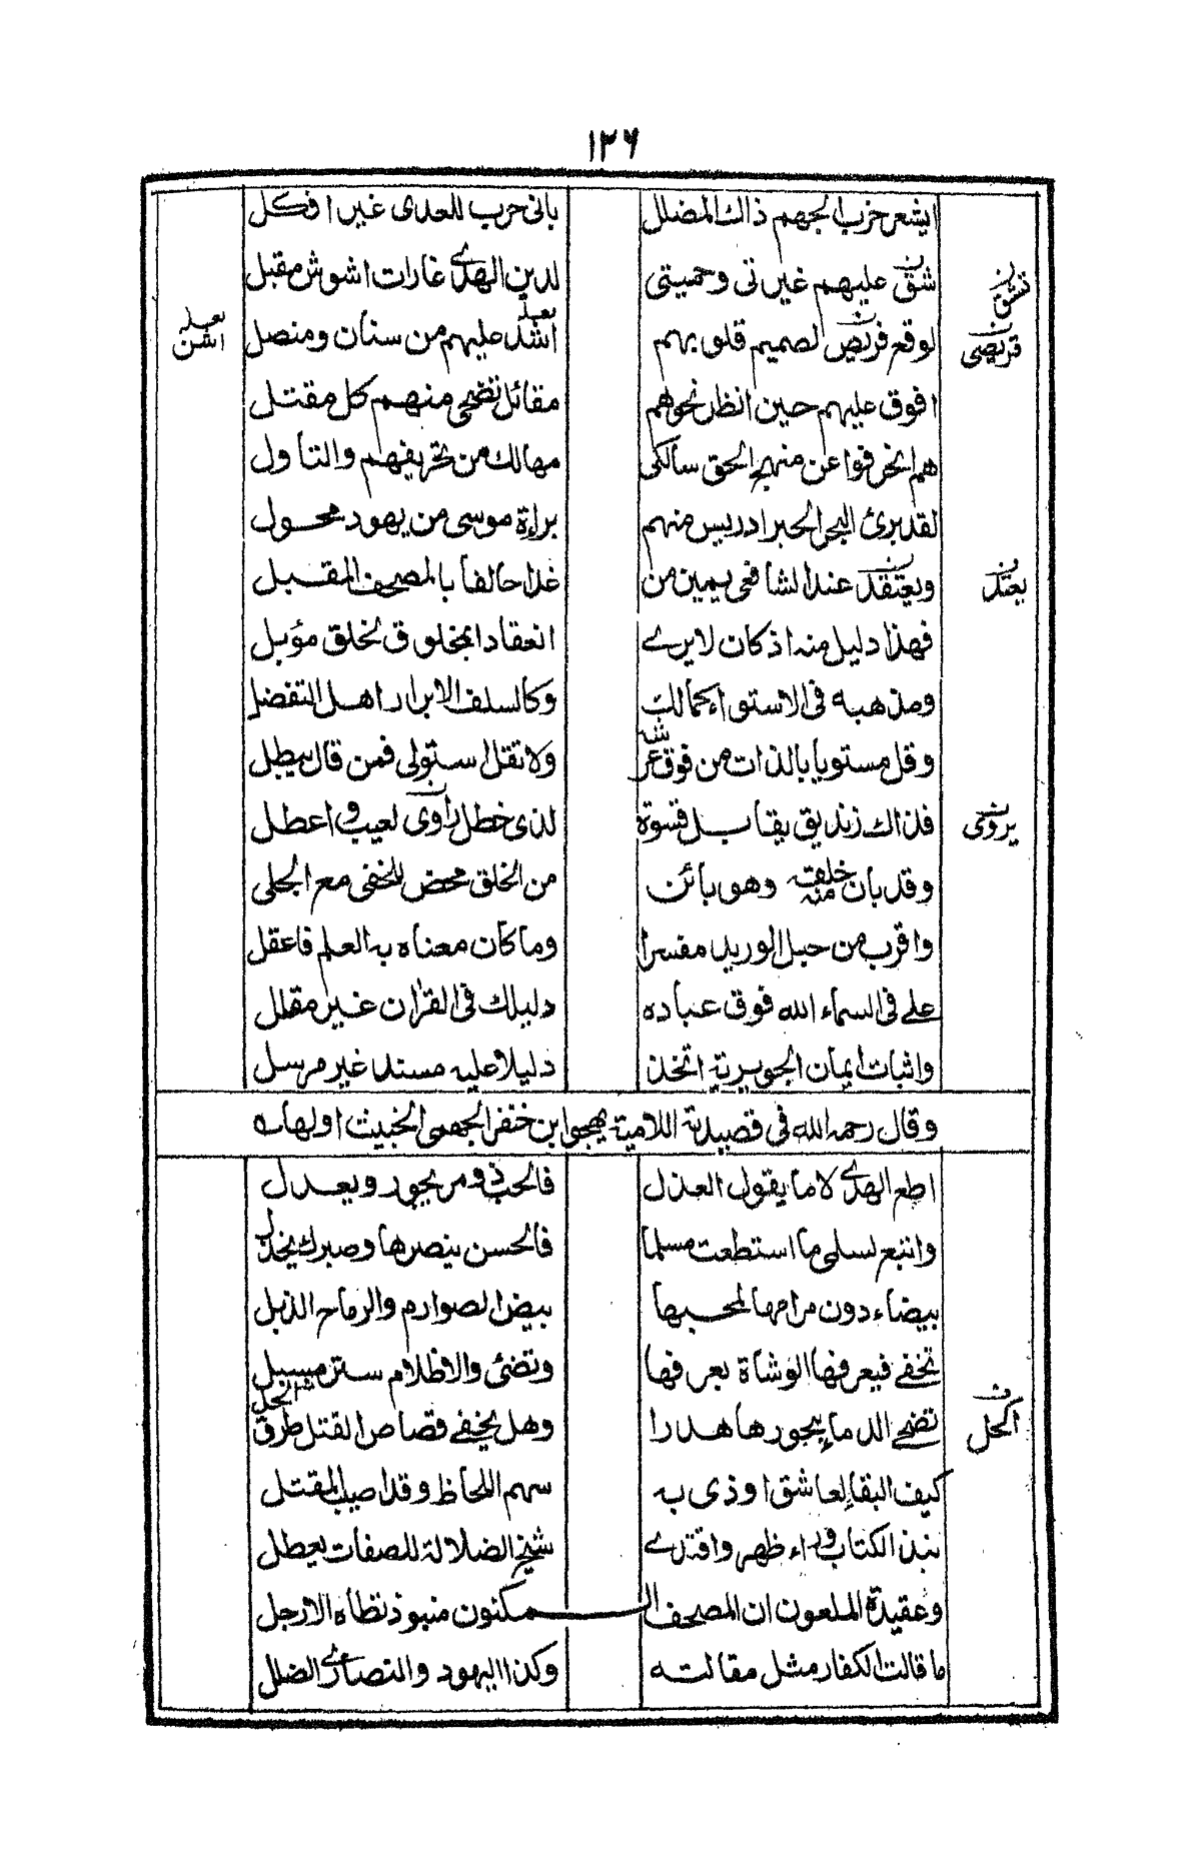 ١٢٦
ايشعر حزب الجهم ذاك المضلل بانى حرب للعدى غير افكل
تشن عليهم غيرتى وحميتى لدين الهدى غارات اشوش مقبل
لوقع قريض الصميم قلوبهم اشد عليهم من سنان ومنصل
افوق عليهم حين انظر نحوهم مقاتل تضحى منهم كل مقتل
هم انحرفوا عن منهج الحق سالكى مهالك من تحريفهم والتاول
لقد برئ البحر الحبر ادريس منهم براءة موسى من يهود محول
ويعتقد عند الشافعى يمين من غدا حالفا بالمصحف المقبل
فهذا دليل منه اذ كان لايرى انعقادا بمخلوق لخلق مؤبل
ومذهبه فى الاستواء كمالك وكالسلف الابرار اهل التفضل
وقل مستويا بالذات من فوق عرشه ولا تقل استولى فمن قال يبطل
فذاك زنديق يقابل قسوة لذى خطل راوى لعيب واعطل
وقد بان منه خلقه وهو بائن من الخلق محض للخفى مع الجلى
واقرب من حبل الوريد مفسرا وما كان معناه به العلم فاعقل
على فى السماء الله فوق عباده دليلك فى القران غير مقلل
واثبات ايمان الجويرية اتخذ دليلا عليه مسندا غير مرسل
وقال رحمه الله فى قصيدته اللامية يهجو ابن خنفر الجهمى الخبيث اولها
اطع الهدى لا ما يقول العذل فالحب ذو مر يجور ويعدل
واتبع لسلمى ما استطعت مسلما فالحسن ينصرها وصبرك يخذل
بيضاء دون مرامها لمحبها بيض الصوارم والرماح الذبل
تخفى فيعرفها الوشاة بعرفها وتضئ والاظلام ستر مسبل
تضحى الدماء بجورها هدرا وهل يخفى قصاص القتل طرق
كيف البقا لعاشق اوذى به سهم اللحاظ وقد اصيب المقتل
نبذ الكتاب وراء ظهر واقتدى شيخ الضلالة للصفات يعطل
وعقيدة الملعون ان المصحف المكنون منبوذ تطأه الارجل
ما قالت الكفار مثل مقالته وكذا اليهود والنصارى الضلل